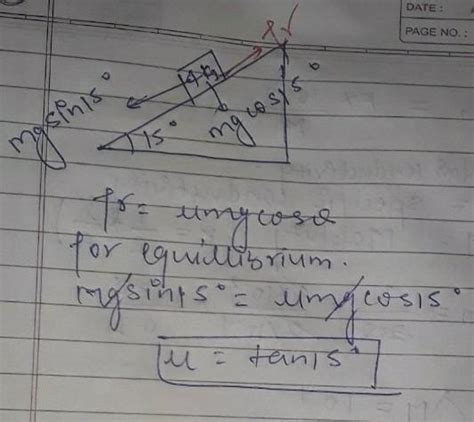 DATE :
PAGE NO. :
mg sin15°
15°
mg cos15°
fr = μmgcosθ
for equilibrium.
mg sin15° = μmg cos15°
μ = tan15°